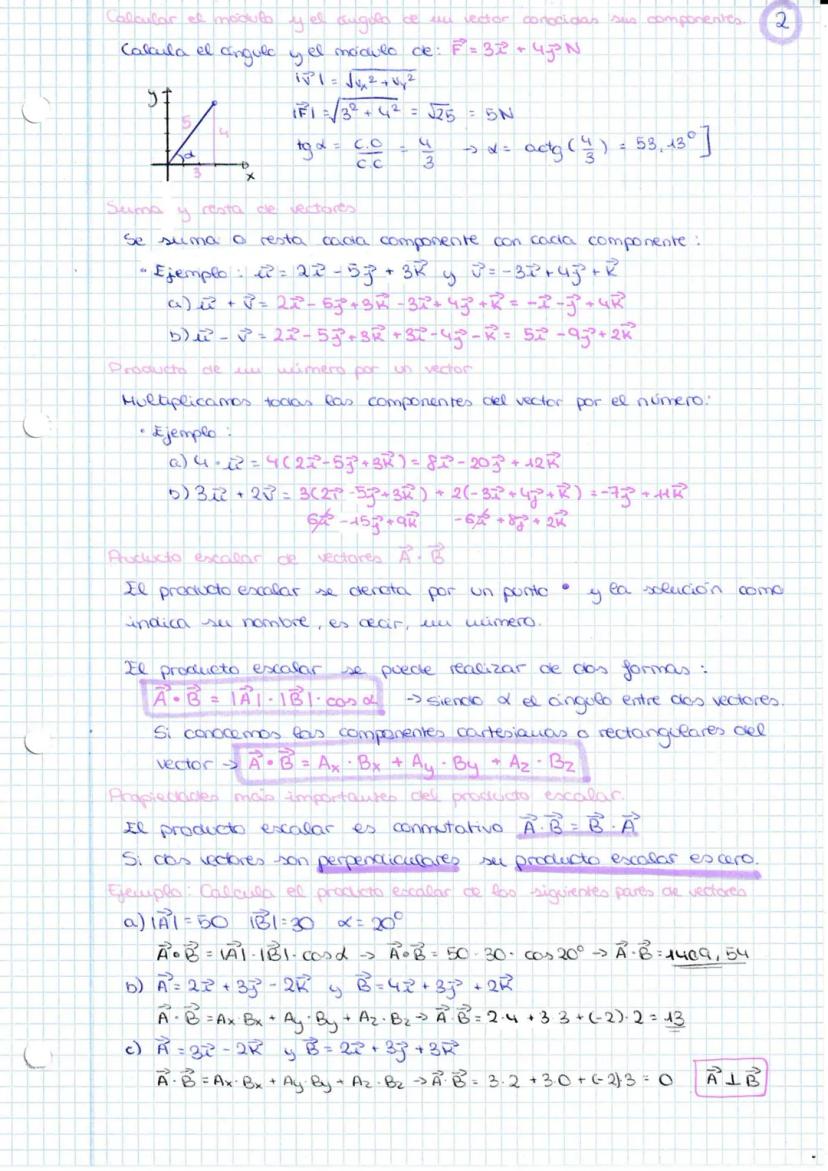 Calcular el módulo y el ángulo de un vector conocidas sus componentes. 2
Calcula el ángulo y el módulo de: F⃗ = 3i⃗ + 4j⃗ N
|v⃗| = √(vx² + vy²)
|F⃗| = √(3² + 4²) = √25 = 5N
tg α = C.O / C.C = 4/3 → α = actg (4/3) = 53,13°]
y 5 4 α 3 x
Suma y resta de vectores
Se suma o resta cada componente con cada componente:
• Ejemplo: u⃗ = 2i⃗ - 5j⃗ + 3k⃗ y v⃗ = -3i⃗ + 4j⃗ + k⃗
a) u⃗ + v⃗ = 2i⃗ - 5j⃗ + 3k⃗ - 3i⃗ + 4j⃗ + k⃗ = -i⃗ - j⃗ + 4k⃗
b) u⃗ - v⃗ = 2i⃗ - 5j⃗ + 3k⃗ + 3i⃗ - 4j⃗ - k⃗ = 5i⃗ - 9j⃗ + 2k⃗
Producto de un número por un vector
Multiplicamos todas las componentes del vector por el número:
• Ejemplo:
a) 4 · u⃗ = 4(2i⃗ - 5j⃗ + 3k⃗) = 8i⃗ - 20j⃗ + 12k⃗
b) 3u⃗ + 2v⃗ = 3(2i⃗ - 5j⃗ + 3k⃗) + 2(-3i⃗ + 4j⃗ + k⃗) = -7j⃗ + 11k⃗
6i⃗ - 15j⃗ + 9k⃗ -6i⃗ + 8j⃗ + 2k⃗
Producto escalar de vectores A⃗ · B⃗
El producto escalar se denota por un punto • y la solución como
indica su nombre, es decir, un número.
El producto escalar se puede realizar de dos formas:
A⃗ • B⃗ = |A⃗| · |B⃗| · cos α → siendo α el ángulo entre dos vectores.
Si conocemos las componentes cartesianas o rectangulares del
vector → A⃗ • B⃗ = Ax · Bx + Ay · By + Az · Bz
Propiedades más importantes del producto escalar
El producto escalar es conmutativo A⃗ · B⃗ = B⃗ · A⃗
Si dos vectores son perpendiculares su producto escalar es cero.
Ejemplo: Calcula el producto escalar de los siguientes pares de vectores
a) |A⃗| = 50 |B⃗| = 30 α = 20°
A⃗ • B⃗ = |A⃗| · |B⃗| · cos α → A⃗ • B⃗ = 50 · 30 · cos 20° → A⃗ · B⃗ = 1409,54
b) A⃗ = 2i⃗ + 3j⃗ - 2k⃗ y B⃗ = 4i⃗ + 3j⃗ + 2k⃗
A⃗ · B⃗ = Ax · Bx + Ay · By + Az · Bz → A⃗ · B⃗ = 2·4 + 3·3 + (-2)·2 = 13
c) A⃗ = 3i⃗ - 2k⃗ y B⃗ = 2i⃗ + 3j⃗ + 3k⃗
A⃗ · B⃗ = Ax · Bx + Ay · By + Az · Bz → A⃗ · B⃗ = 3·2 + 3·0 + (-2)·3 = 0 A⃗ ⊥ B⃗